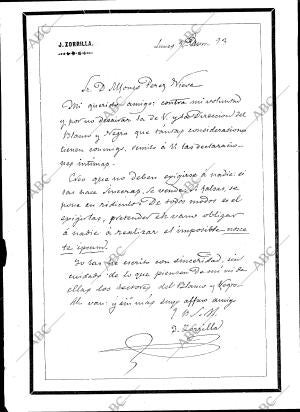 J. ZORRILLA.
Lunes
Sr. D. Alfonso Perez Nieva
Mi querido amigo: contra mi voluntad
y por no desairar la de V. y la Direccion del
Blanco y Negro que tantas consideraciones
tienen conmigo, remito á V. las declaracio-
nes intimas.
Creo que no deben exigirse á nadie: si
las hace sinceras, se vende; si falsas, se
pone en ridiculo. De todos modos es el
exigirlas, pretender
á nadie á realizar el imposible nosce
te ipsum.
Yo las he escrito con sinceridad, sin
cuidado de lo que piensen de mi ni de
ellas los lectores del Blanco y Negro.
Ahi van: y sin más suyo affmo amigo
q. b. s. m.
J. Zorrilla
ABC